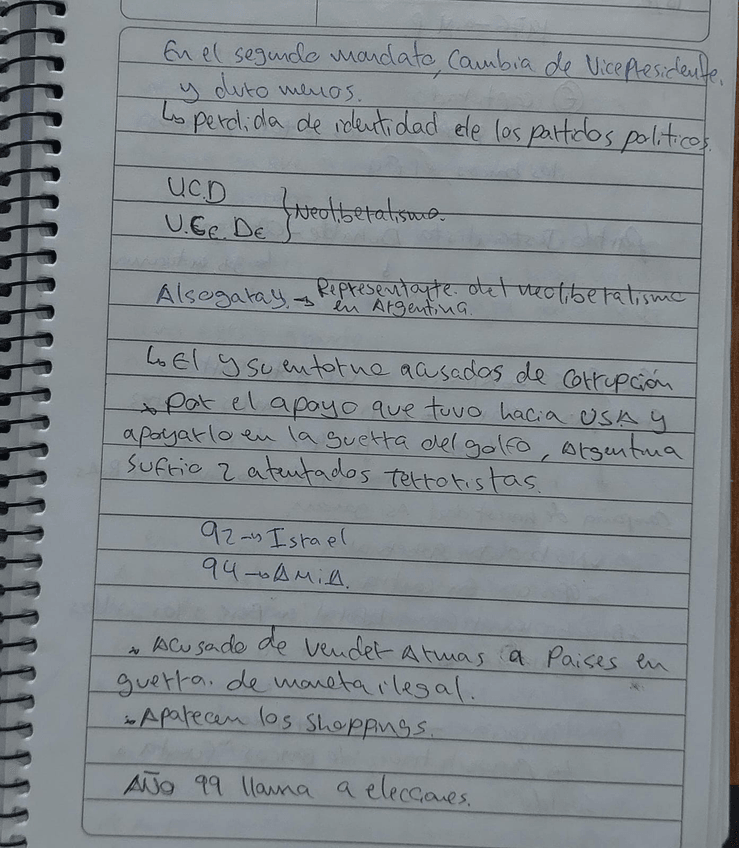 En el segundo mandato, Cambia de Vicepresidente,
y duro menos.
↳ perdida de identidad de los partidos politicos.
UCD
U.Ce.De } Neoliberalismo.
Alsogaray → Representante del neoliberalismo
en Argentina.
↳ El y su entorno acusados de corrupción
* Por el apoyo que tuvo hacia USA y
apoyarlo en la guerra del golfo, Argentina
sufrio 2 atentados terroristas.
92 → Israel
94 → AMiA.
* Acusado de vender Armas a Paises en
guerra. de manera ilegal.
* Aparecen los shoppings.
AÑo 99 llama a elecciones.